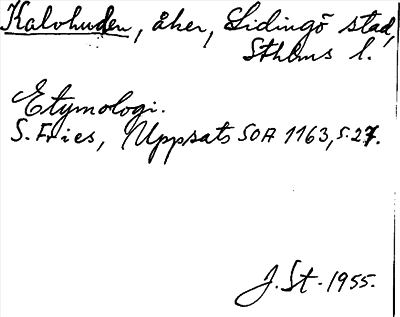 Kalvhuden, åker, Lidingö stad,
Sthlms l.
Etymologi.
S. Fries, Uppsats SOA 1163, s. 27.
J. St. 1955.